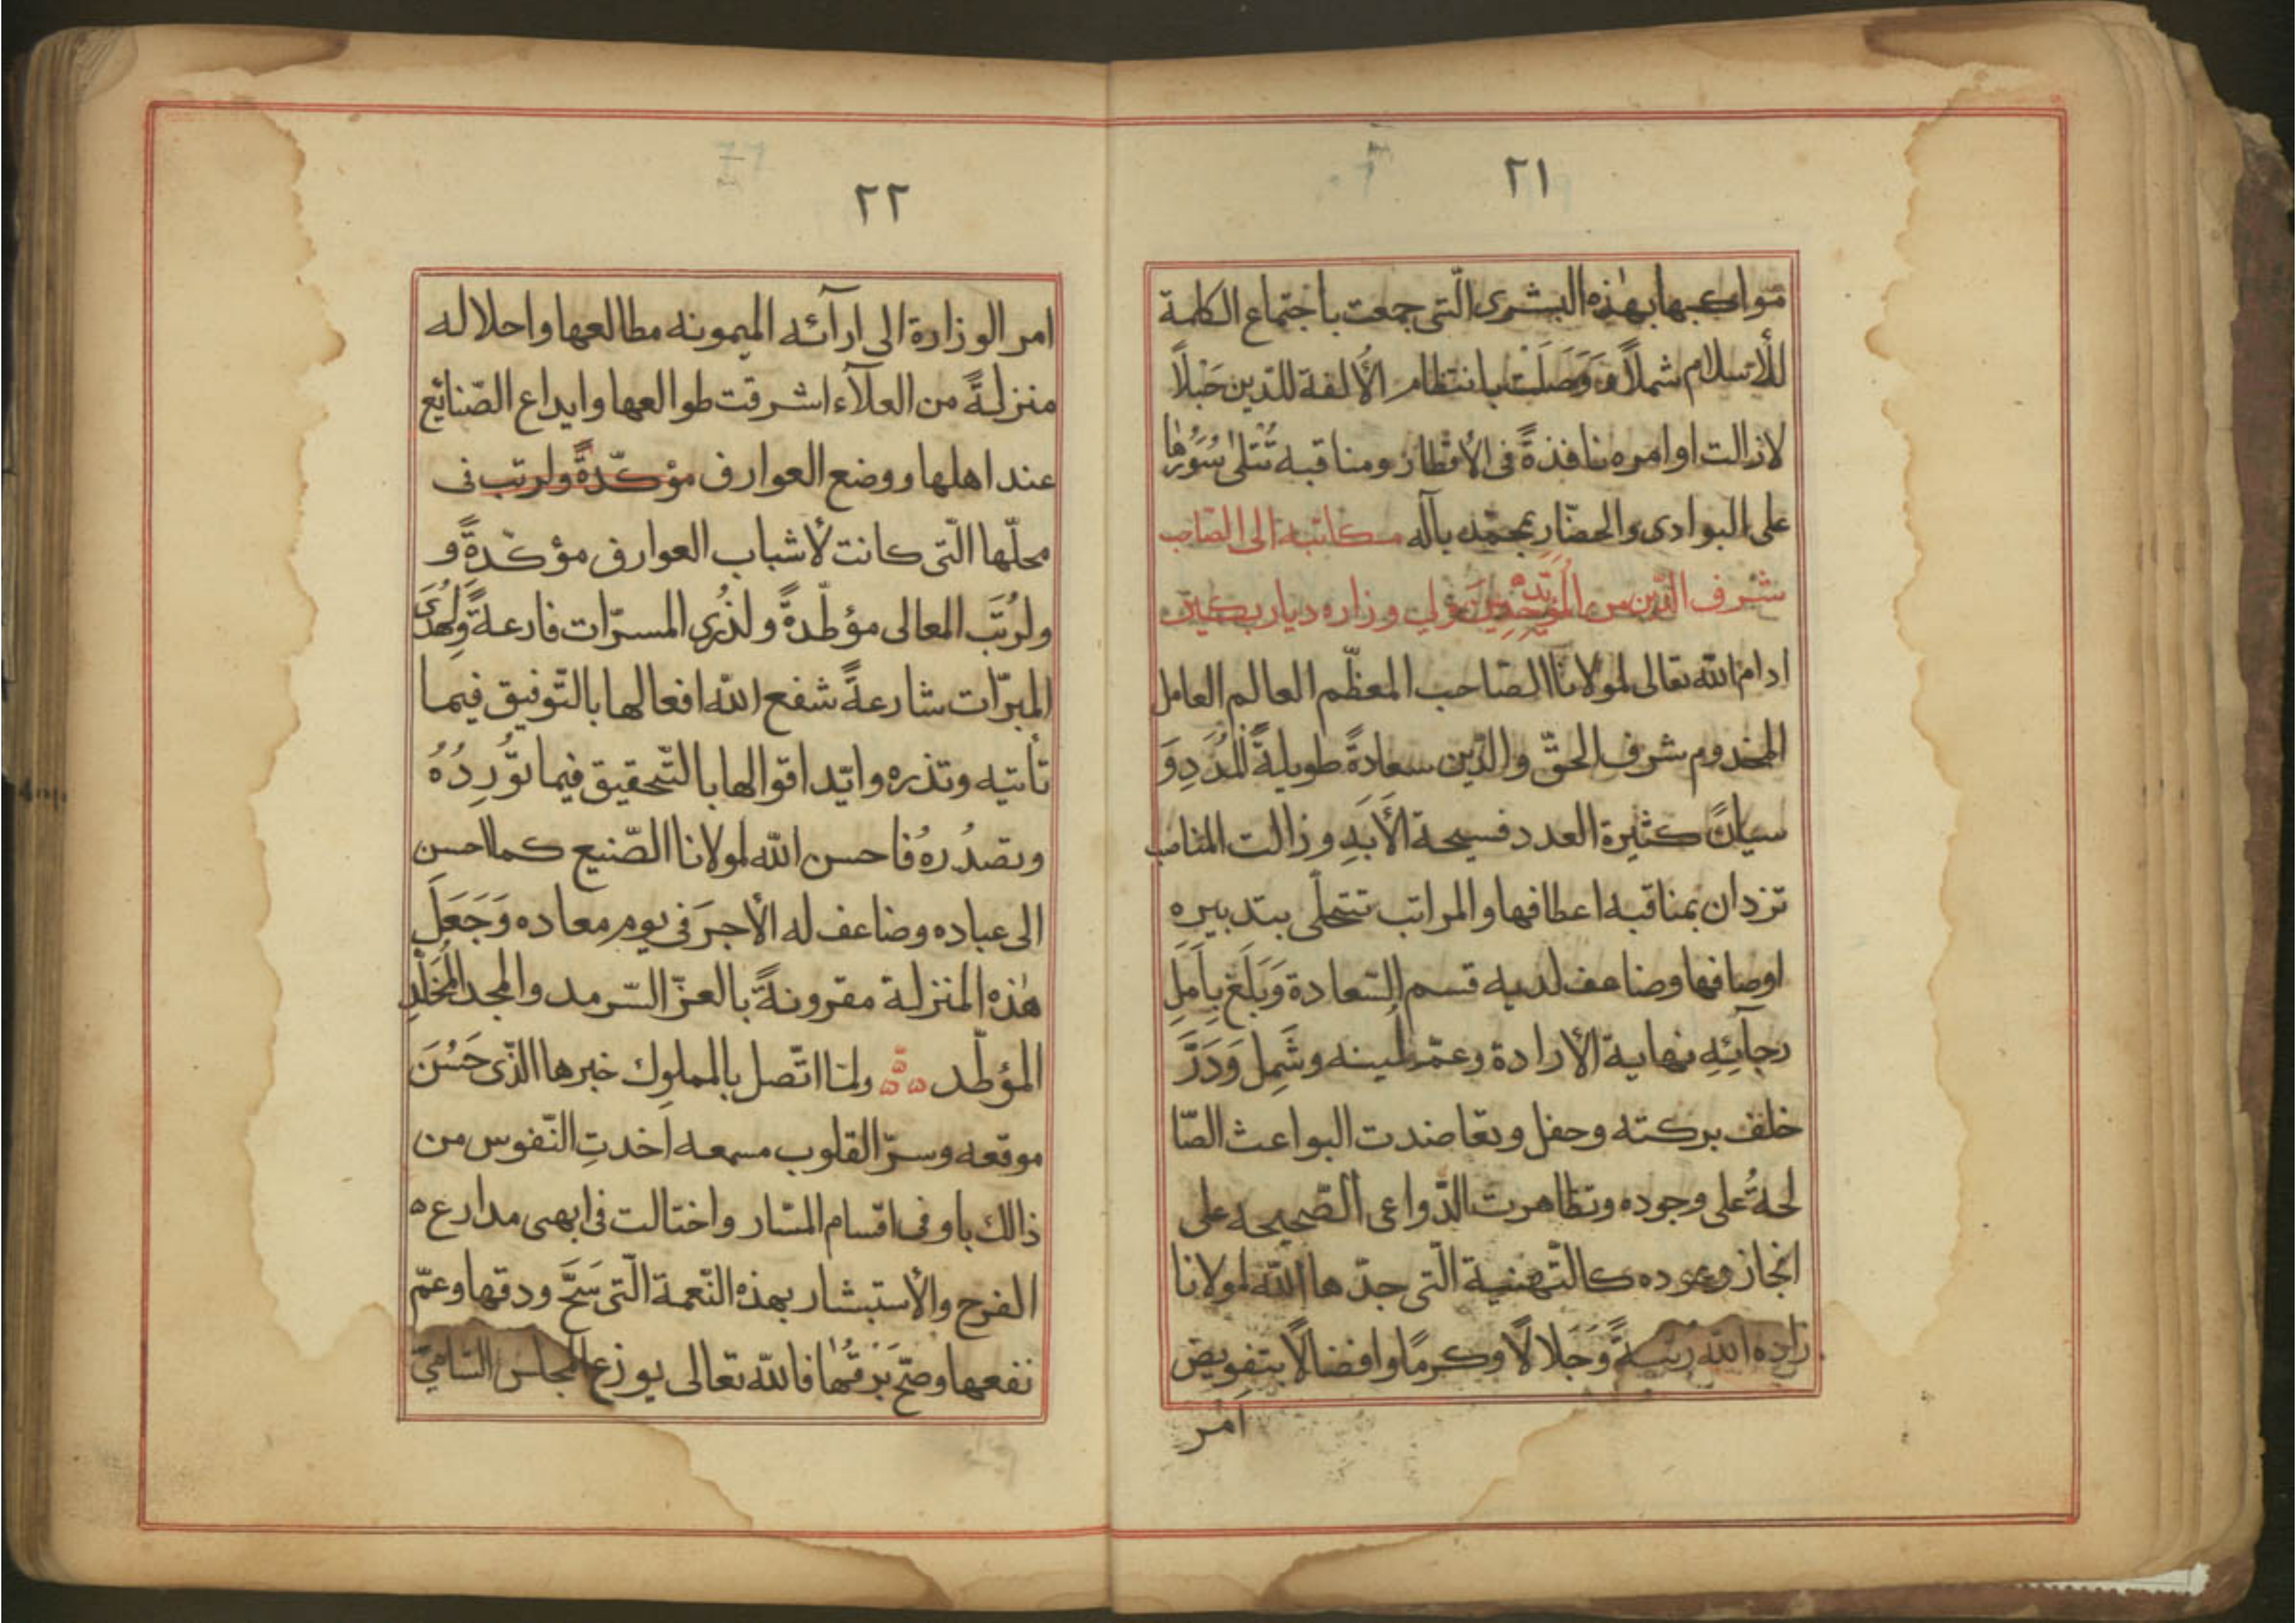 ٢١
مواكبها بهٰذه البشرى الّتى جمعت باجتماع الكلمة
للأسلام شملاً وَوَصَلَتْ بانتظام الأُلفة للدّين حَبْلاً
لازالت اوامره نافذةً فى الأقطار ومناقبه تُتلىٰ سُوَرُها
على البوادى والحضّار بمحمّد بآله مكاتبة الى الصّاحب
شرف الدّين من وُلى وزاره ديار بكير
ادام الله تعالى لمولانا الصّاحب المعظّم العالم العامل
المخدوم شرف الحقّ والدّين سعادةً طويلةً المُدَدِ وَ
سيادةً كثيرة العدد فسيحة الأَبَدِ وزالت المناصب
تزدان بمناقبه اعطافها والمراتب تتحلّى بتدبيره
اوصافها وضاعف لديه قسم السّعادة وَبَلَغَ بِاَمَلِ
رجآئِهِ نهاية الأرادة وعمّر وشَمِل وَدَرَّ
خلف بركته وحفل وتعاضدت البواعث الصّا
لحةُ على وجوده وتظاهرت الدّواعى الصّحيحه على
انجاز وعوده كالتّهنية الّتى جدّها الله لمولانا
زاده الله رتبةً وَجَلالاً وكرمًا وافضالاً بتفويض
امر
٢٢
امر الوزارة الى ارآئه الميمونه مطالعها واحلاله
منزلةً من العلآء اشرقت طوالعها وايداع الصّنائع
عند اهلها ووضع العوارف مؤكّدةً ولرتب فى
محلّها الّتى كانت لأشباب العوارف مؤكّدةً و
ولرُتَبِ المعالى مؤطّدةً ولذُرى المسرّات فارعةً وَلِهُدَى
المبرّات شارعةً شفع الله افعالها بالتّوفيق فيما
تأتيه وتذره وايّد اقوالها بالتّحقيق فيما تُورِدُهُ
وتصدُرهُ فاحسن الله لمولانا الصّنيع كما احسن
الى عباده وضاعف له الأجرَ فى يوم معاده وَجَعَلَ
هٰذه المنزلة مقرونةً بالعزّ السّرمد والمجد المُخَلَّدِ
المؤطّد ولمّا اتّصل بالمملوك خبرها الذّى حَسُنَ
موقعه وسرّ القلوب مسمعه اخدتِ النّفوس من
ذالك باوفى اقسام المسّار واختالت فى ابهى مدارع
الفرح والأستبشار بهذه النّعمة الّتى سَحَّ ودقها وعمّ
نفعها وصحّ بَرْقُها فالله تعالى يوزع المجلس السّامىّ